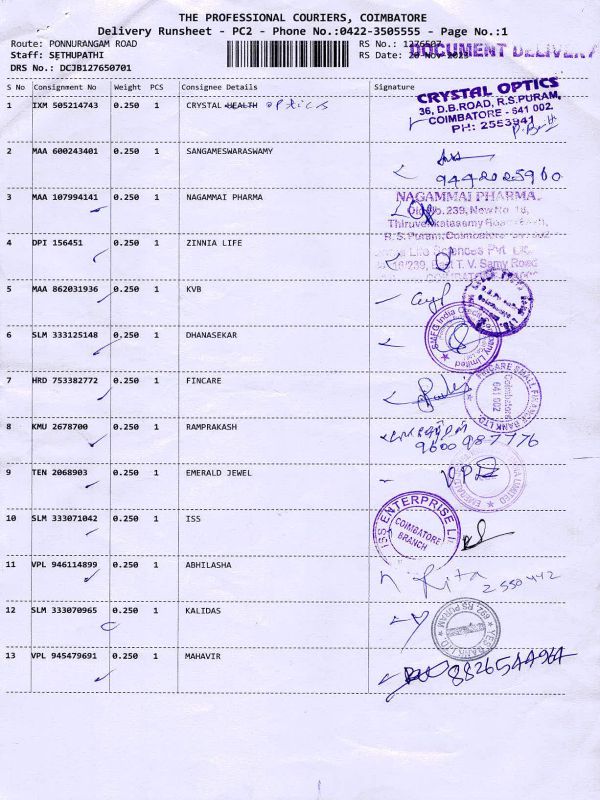 THE PROFESSIONAL COURIERS, COIMBATORE
Delivery Runsheet - PC2 - Phone No.:0422-3505555 - Page No.:1
Route: PONNURANGAM ROAD
RS No.:
DOCUMENT DELIVERY
Staff: SETHUPATHI
RS Date: Nov
DRS No.: DCJB127650701
S No Consignment No Weight PCS Consignee Details Signature
1 IXM 505214743 0.250 1 CRYSTAL HEALTH optics
CRYSTAL OPTICS
36, D.B.ROAD, R.S.PURAM,
COIMBATORE - 641 002.
PH: 2553941
2 MAA 600243401 0.250 1 SANGAMESWARASWAMY
9442025900
3 MAA 107994141 0.250 1 NAGAMMAI PHARMA
NAGAMMAI PHARMA.
Old No. 239, New No. 18,
Thiruvenkatasamy Road
R.S. Puram, Coimbatore
4 DPI 156451 0.250 1 ZINNIA LIFE
Life Sciences Pvt Ltd.
T. V. Samy Road
5 MAA 862031936 0.250 1 KVB
6 SLM 333125148 0.250 1 DHANASEKAR
SMFG India
Company Limited
7 HRD 753382772 0.250 1 FINCARE
FINCARE SMALL FINANCE BANK LTD
Coimbatore
641 002
8 KMU 2678700 0.250 1 RAMPRAKASH
9600987776
9 TEN 2068903 0.250 1 EMERALD JEWEL
10 SLM 333071042 0.250 1 ISS
ISS ENTERPRISE
COIMBATORE
BRANCH
11 VPL 946114899 0.250 1 ABHILASHA
Rita
2550442
12 SLM 333070965 0.250 1 KALIDAS
YES BANK LTD
692, RS PURAM
13 VPL 945479691 0.250 1 MAHAVIR
8826544964